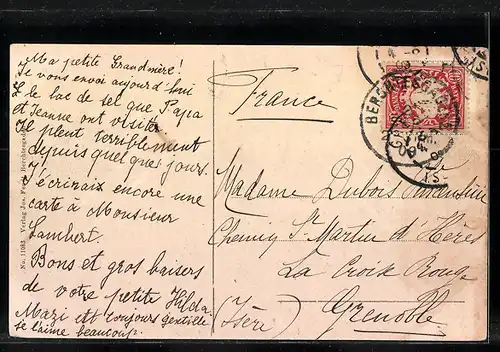 Ma petite Grandmère!
Je vous envoi aujourd'hui
le lac de sel que Papa
et Jeanne ont visiter
Il pleut terriblement
depuis quelques jours.
J'écrinaix encore une
carte à Monsieur
Lambert.
Bons et gros baisers
de votre petite Hilda.
Mazi est toujours gentille
je t'aime beaucoup.
No. 11083 Verlag Jos.
France
Madame Dubois
Chemin St Martin d'Hères
La Croix Rouge
Grenoble
(Isère)
BERCHTESGADEN